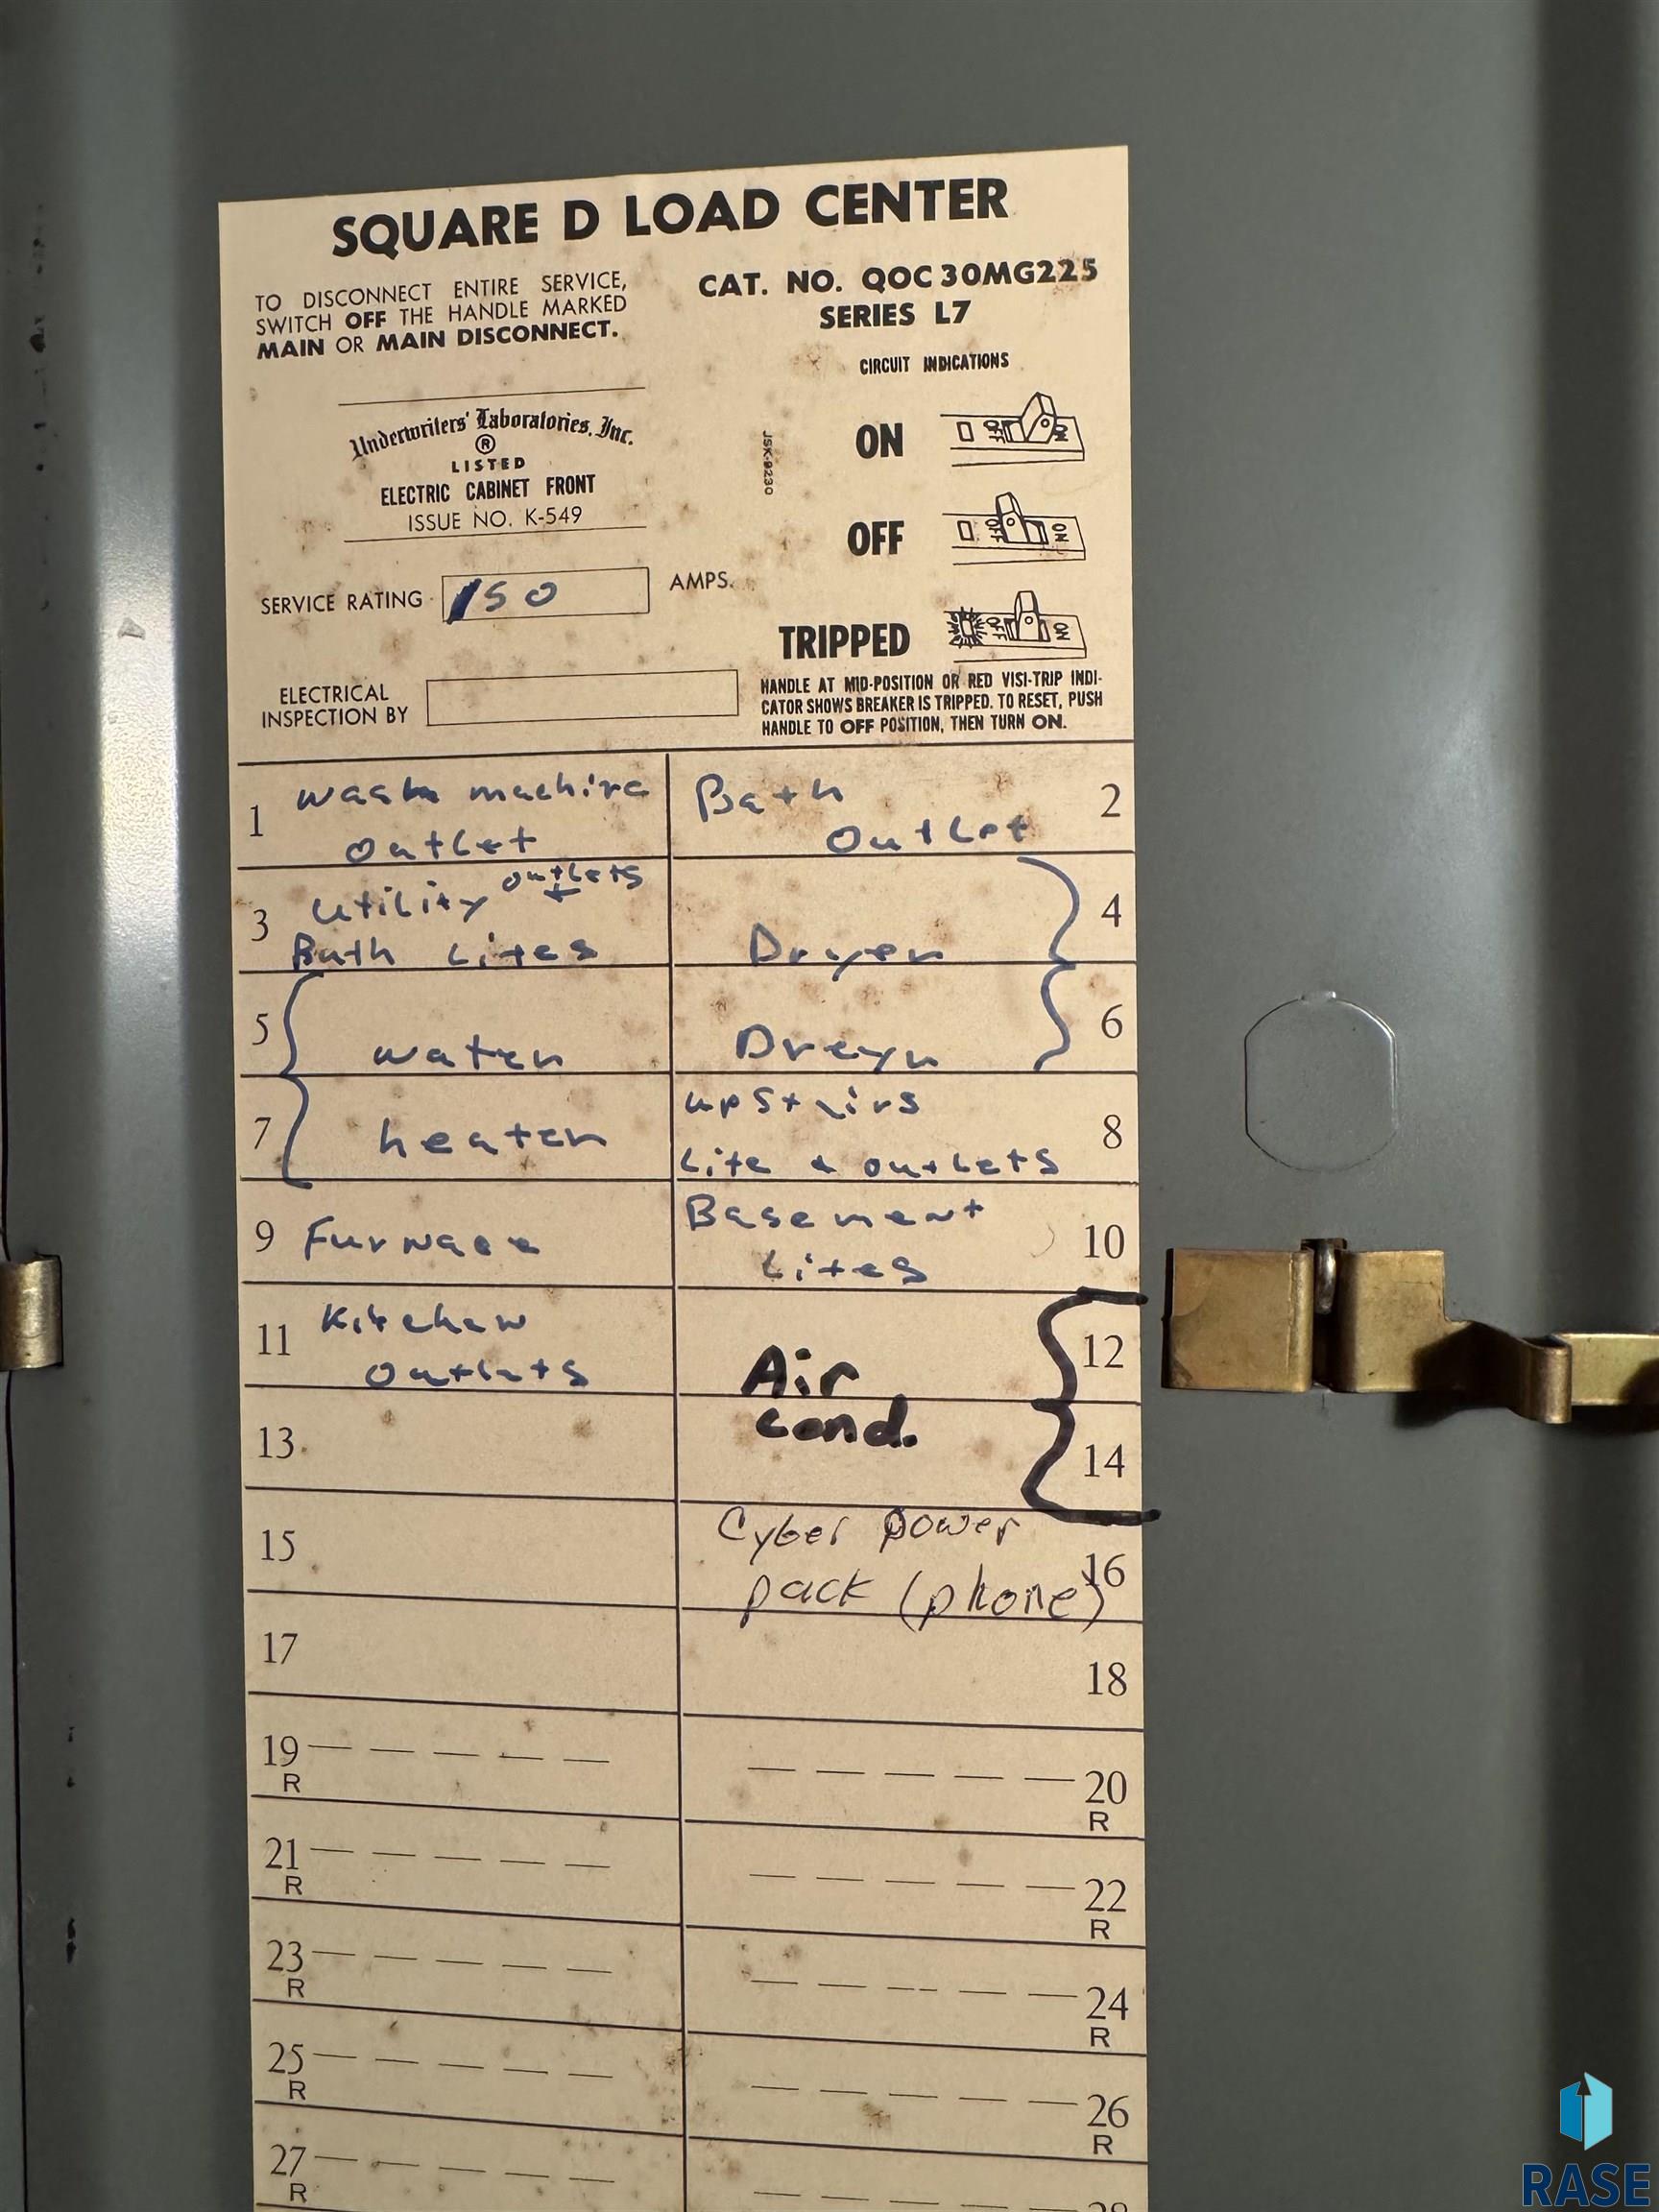 SQUARE D LOAD CENTER
TO DISCONNECT ENTIRE SERVICE,
SWITCH OFF THE HANDLE MARKED
MAIN OR MAIN DISCONNECT.
CAT. NO. QOC30MG225
SERIES L7
CIRCUIT INDICATIONS
Underwriters' Laboratories, Inc.
®
LISTED
ELECTRIC CABINET FRONT
ISSUE NO. K-549
JSK-9230
ON
OFF ON
OFF
OFF ON
SERVICE RATING 150 AMPS.
TRIPPED
OFF ON
ELECTRICAL
INSPECTION BY
HANDLE AT MID-POSITION OR RED VISI-TRIP INDI-
CATOR SHOWS BREAKER IS TRIPPED. TO RESET, PUSH
HANDLE TO OFF POSITION, THEN TURN ON.
1 wash machine
outlet
Bath
outlet 2
3 utility outlets +
Bath Lites
Dryer 4
5 water
Dreyr 6
7 heater
upstairs
Lite & outlets 8
9 Furnace
Basement
Lites 10
11 Kitchen
outlets
Air 12
13
cond. 14
15
Cyber power
pack (phone) 16
17
18
19
R
20
R
21
R
22
R
23
R
24
R
25
R
26
R
27
R
28
RASE